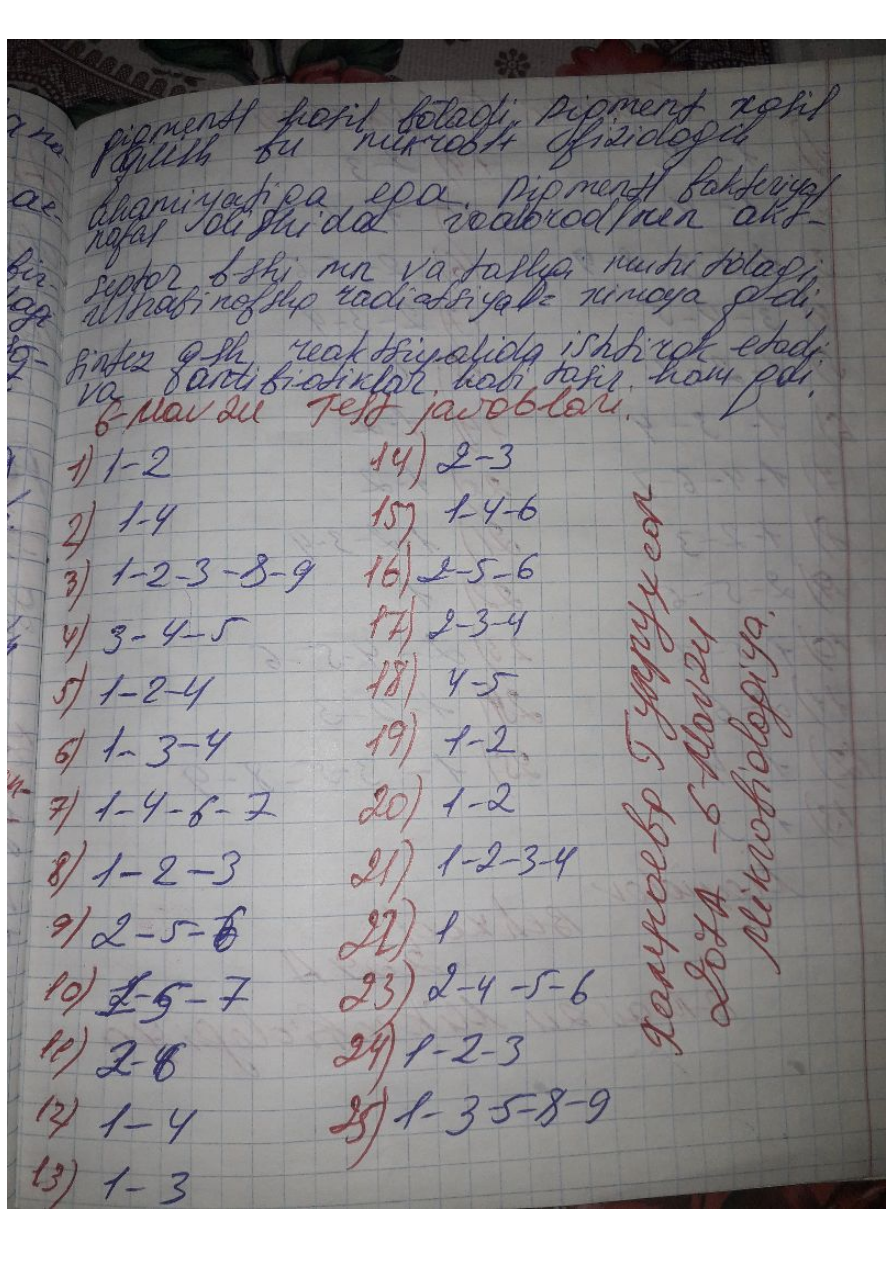 pigment hosil bo'ladi. pigment xosil
qilish bu mikrobli fiziologik
ahamiyatiga ega. pigment bakteriyal
nafas olishida vodorod mn akt-
septor b-shi mn va tashqi muhitdagi
ultrabinafsha radiatsiyadan ximoya q-di,
sintez q-sh reaktsiyalida ishtirok etadi
va antibiotiklar kabi tasir ham q-di.
6-Mavzu Test javoblari.
1) 1-2
2) 1-4
3) 1-2-3-8-9
4) 3-4-5
5) 1-2-4
6) 1-3-4
7) 1-4-6-7
8) 1-2-3
9) 2-5-6
10) 5-7
11) 2-6
12) 1-4
13) 1-3
14) 2-3
15) 1-4-6
16) 2-5-6
17) 2-3-4
18) 4-5
19) 1-2
20) 1-2
21) 1-2-3-4
22) 1
23) 2-4-5-6
24) 1-2-3
25) 1-3-5-8-9
207A-6-Mavzu
Mikrobiologiya.